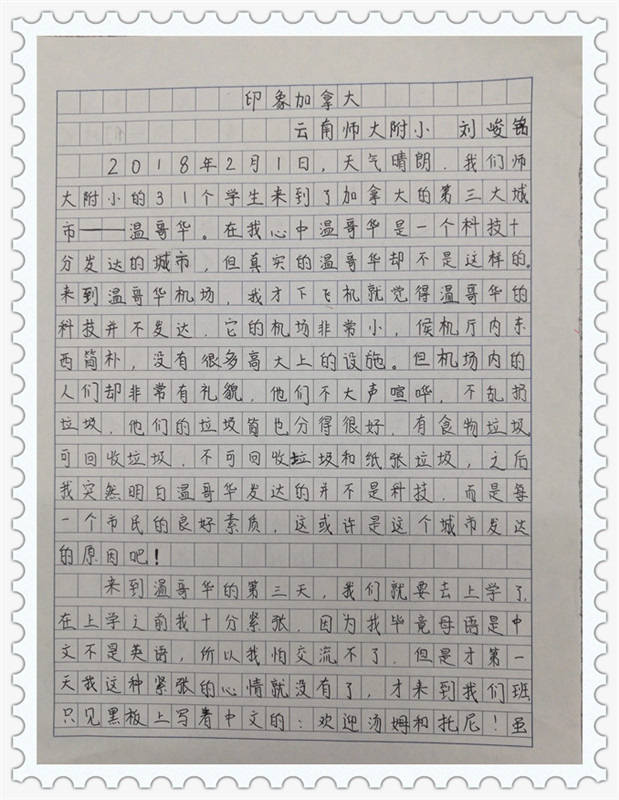 印象加拿大
云南师大附小 刘峻铭
2018年2月1日，天气晴朗．我们师
大附小的31个学生来到了加拿大的第三大城
市——温哥华。在我心中温哥华是一个科技十
分发达的城市，但真实的温哥华却不是这样的。
来到温哥华机场，我才下飞机就觉得温哥华的
科技并不发达．它的机场非常小，候机厅内东
西简朴，没有很多高大上的设施。但机场内的
人们却非常有礼貌，他们不大声喧哗，不乱扔
垃圾．他们的垃圾筒也分得很好．有食物垃圾
可回收垃圾．不可回收垃圾和纸张垃圾，之后
我突然明白温哥华发达的并不是科技，而是每
一个市民的良好素质，这或许是这个城市发达
的原因吧！
来到温哥华的第三天，我们就要去上学了．
在上学之前我十分紧张．因为我毕竟母语是中
文不是英语，所以我怕交流不了．但是才第一
天我这种紧张的心情就没有了，才来到我们班
只见黑板上写着中文的：欢迎汤姆和托尼！虽